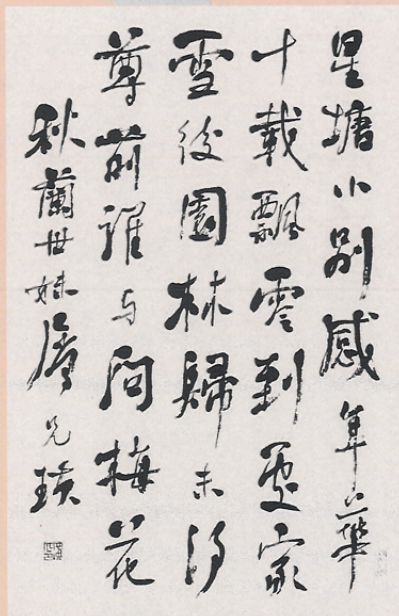 星塘小别感年華
十載飄零到處家
雪後園林歸未得
尊前誰与問梅花
秋蘭世妹属